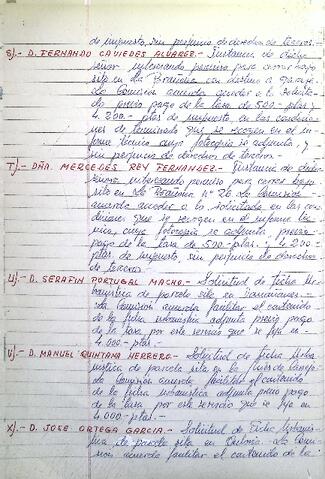 de impuesto, sin perjuicio de derechos de terceros.-
S).- D. FERNANDO CAVIEDES ALVAREZ.- Instancia de dicho
señor interesando permiso para cerrar bajo
sito en La Brañuca con destino a garaje.
La Comisión acuerda acceder a lo solicita-
do previo pago de la tasa de 500.- ptas. y
4.200.- ptas. de impuesto, en las condicio-
nes de terminado que se recogen en el in-
forme técnico cuya fotocopia se adjunta, y
sin perjuicio de derechos de terceros.-
T).- DÑA. MERCEDES REY FERNANDEZ.- Instancia de dicha
señora interesando permiso para cerrar bajo
sito en La Brañuca nº 26. La Comisión
acuerda acceder a lo solicitado en las con-
diciones que se recogen en el informe téc-
nico, cuya fotocopia se adjunta, previo
pago de la tasa de 500- ptas. y 4.200-
ptas. de impuesto, sin perjuicio de derechos
de terceros.-
U).- D. SERAFIN PORTUGAL MACHO.- Solicitud de Ficha Ur-
banística de parcela sita en
La Comisión acuerda facilitar el contenido
de la ficha urbanística adjunta previo pago
de la tasa por este servicio que se fija en
4.000- ptas.-
V).- D. MANUEL QUINTANA HERRERO.- Solicitud de Ficha Urba-
nística de parcela sita en
La Comisión acuerda facilitar el contenido
de la ficha urbanística adjunta previo pago
de la tasa por este servicio que se fija en
4.000- ptas.-
X).- D. JOSE ORTEGA GARCIA.- Solicitud de Ficha Urbanís-
tica de parcela sita en La Comi-
sión acuerda facilitar el contenido de la